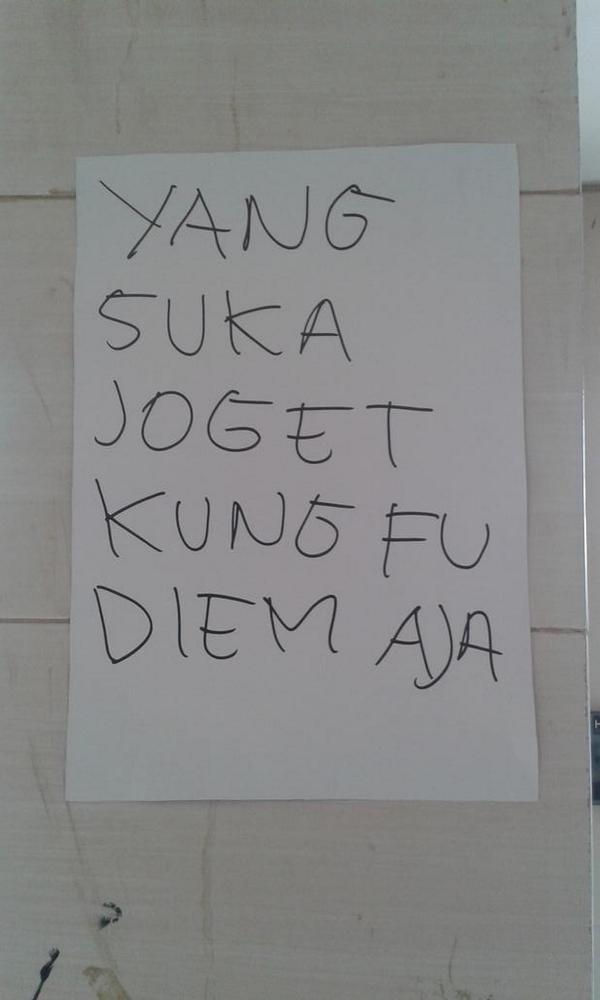 YANG
SUKA
JOGET
KUNG FU
DIEM AJA